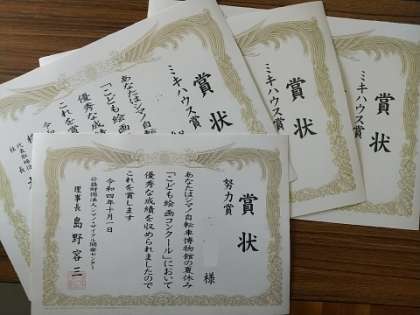 賞状
努力賞
様
あなたはシマノ自転車博物館の夏休み
「こども絵画コンクール」において
優秀な成績を収められましたので
これを賞します
令和四年十月一日
公益財団法人シマノ・サイクル開発センター
理事長 島野容三
賞状
ミキハウス賞
あなたはシマノ自転
「こども絵画コン
優秀な成績
これを賞
賞状
ミキハウス賞
賞状
ミキハウス賞